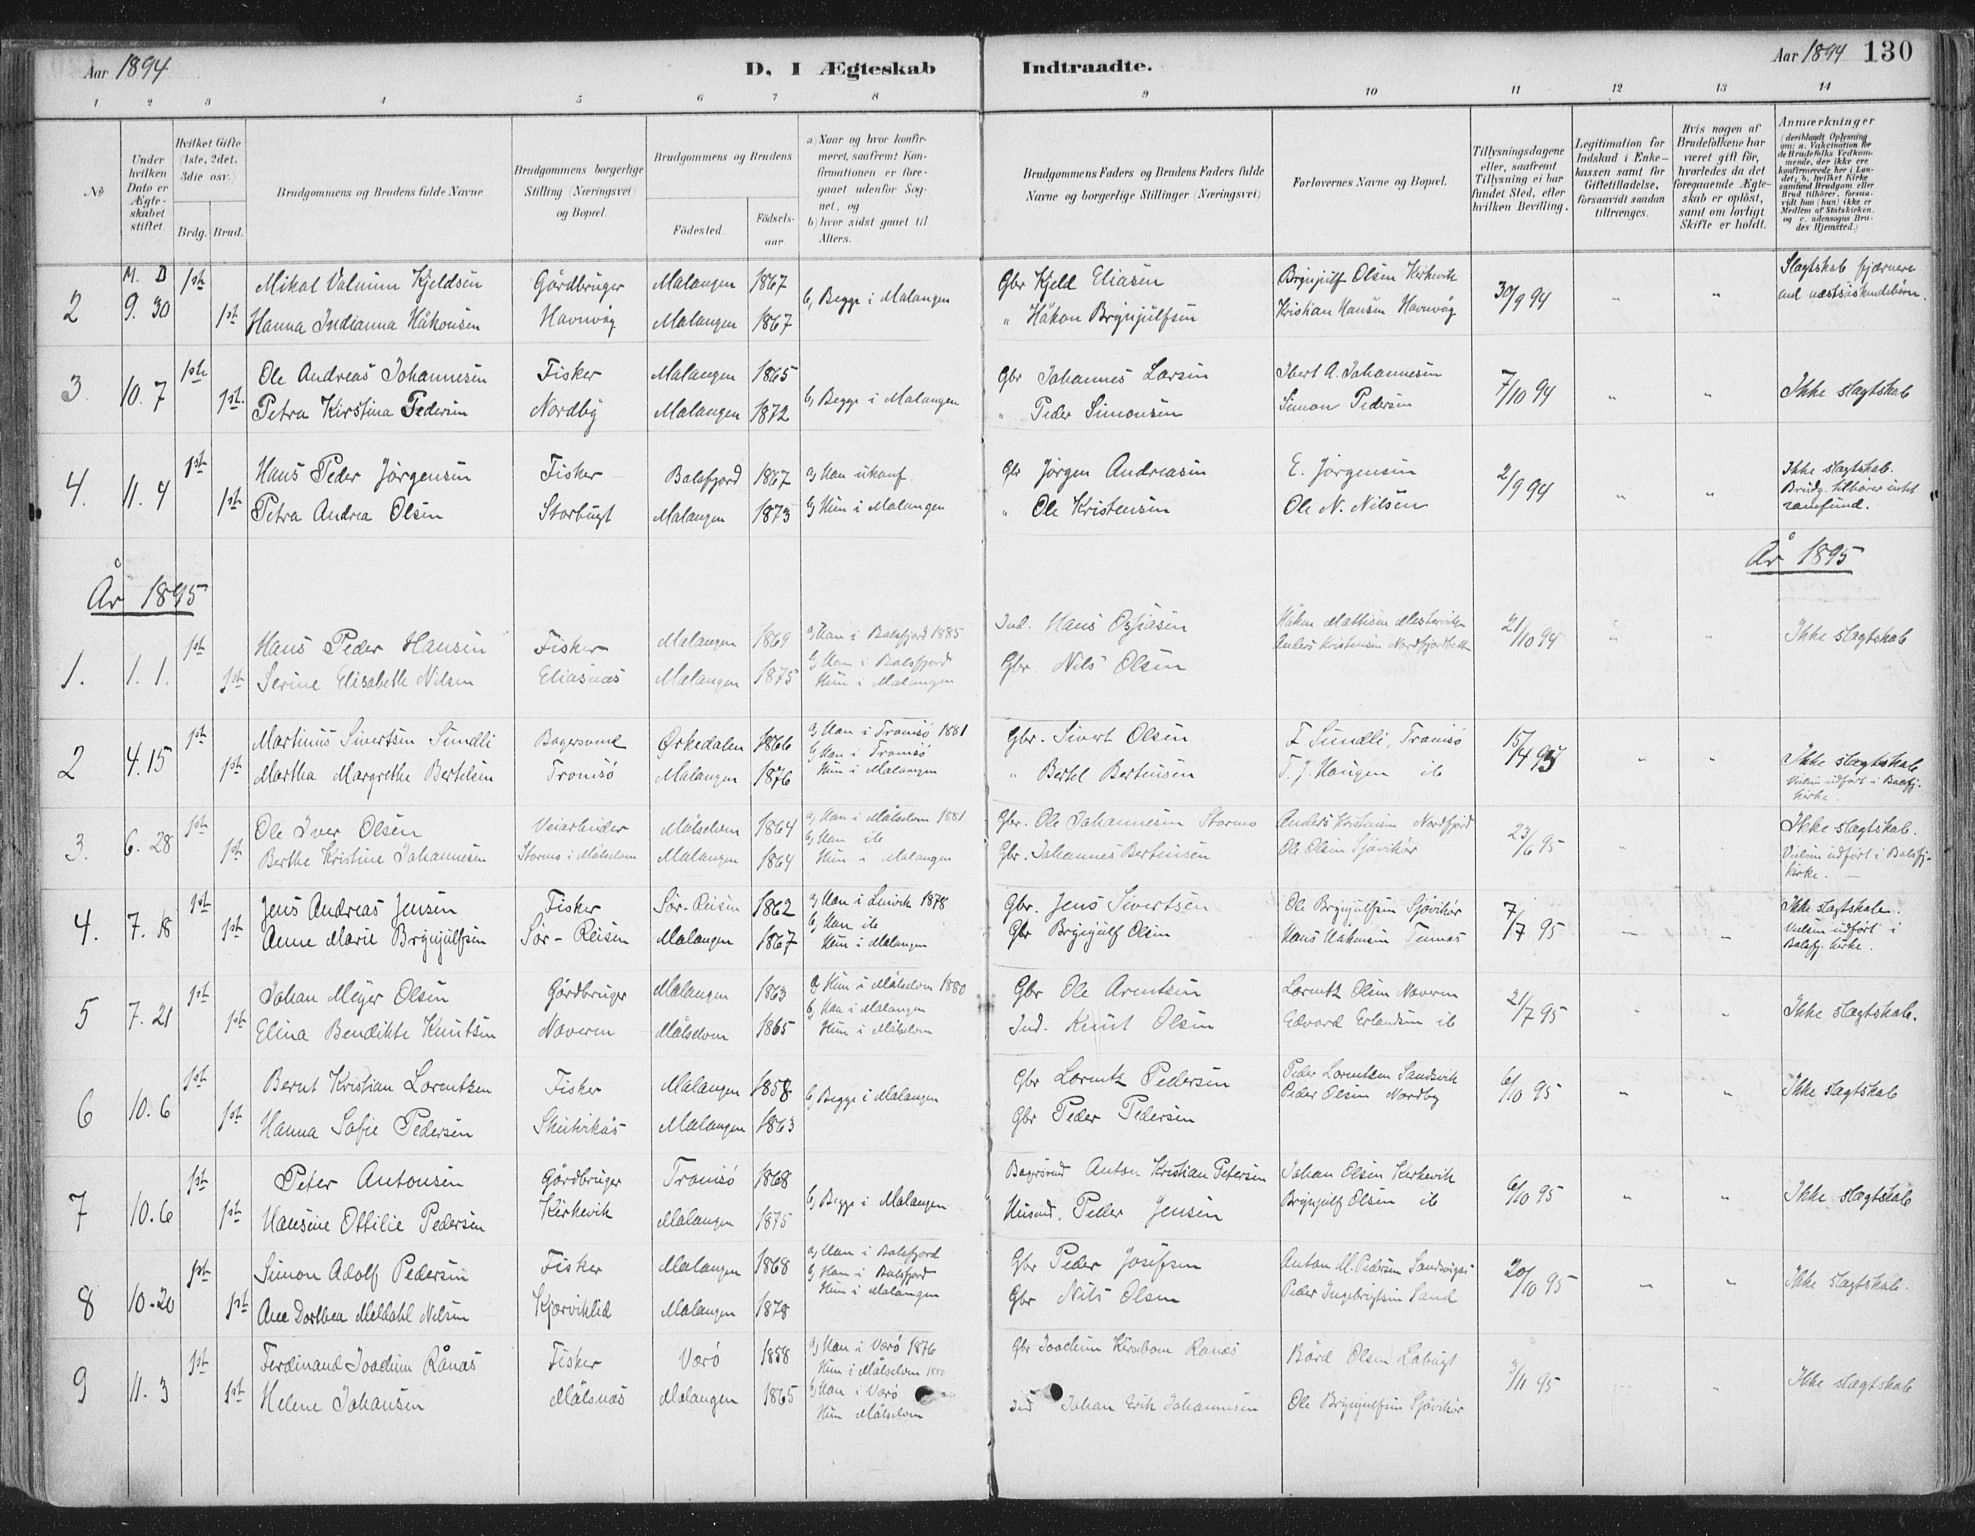 Aar 1894
D, I Ægteskab Indtraadte.
Aar 1894 130
1 2 3 4 5 6 7 8 9 10 11 12 13 14
No
Under hvilken Dato er Ægteskabet stiftet.
Hvilket Gifte (1ste, 2det, 3die osv.)
Brdg. Brud.
Brudgommens og Brudens fulde Navne
Brudgommens borgerlige Stilling (Næringsvei) og Bopæl.
Brudgommens og Brudens
Födested. Födselsaar.
a) Naar og hvor konfirmeret, saafremt Konfirmationen er foregaaet udenfor Sognet, og
b) hvor sidst gaaet til Alters.
Brudgommens Faders og Brudens Faders fulde Navne og borgerlige Stillinger (Næringsvei)
Forlovernes Navne og Bopæl.
Tillysningsdagene eller, saafremt Tillysning ei har fundet Sted, efter hvilken Bevilling.
Legitimation for Indskud i Enkekassen samt for Giftetilladelse, forsaavidt saadan tiltrænges.
Hvis nogen af Brudefolkene har været gift för, hvorledes da det foregaaende Ægteskab er oplöst, samt om lovligt Skifte er holdt.
Anmærkninger
(deriblandt Oplysning om: a. Vaccination for de Brudefolks Vedkommende, der ikke ere konfirmerede her i Landet; b. hvilket Kirkesamfund Brudgom eller Brud tilhörer, forsaavidt han (hun) ikke er Medlem af Statskirken, og c. udensogns Brudes Hjemsted.)
M. D
2 9. 30 1ste Mikal Kjeldsen Gårdbruger Malangen 1867 b, Begge i Malangen Gbr Kjeld Eliasen Brynjulf Olsen Kirkevik 30/9 94 " " Slagtskab fjærnere end næstsøskendebørn.
1st Hanna Indianna Håkonsen Havnvåg Malangen 1867 " Håkon Brynjulfsen Kristian Hansen Havnvåg
3. 10. 7 1ste Ole Andreas Johannesen Fisker Malangen 1865 b, Begge i Malangen Gbr Johannes Larsen A. Johannesen 7/10 94 " " Ikke slagtskab
1st. Petra Kirstina Pedersen Nordby Malangen 1872 " Peder Simonsen Simon Pedersen
4. 11. 4 1st Hans Peder Jörgensen Fisker Balsfjord 1867 a, Han ukonf. Gbr Jörgen Andreasen E. Jörgensen 2/9 94 " " Ikke slagtskab. Brudg. tilhører intet samfund.
1st Petra Andrea Olsen Storbugt Malangen 1873 b, Hun i Malangen " Ole Kristensen Ole N. Nilsen
År 1895 År 1895
1. 1. 1. 1st Hans Peder Hansen Fisker Malangen 1869 a, Han i Balsfjord 1885 Ind. Hans Osjasen Håkon Mattisen Mestervik 21/10 94 " " Ikke slagtskab
1st Serine Elisabeth Nilsen Eliasnæs Malangen 1875 b, Han i Balsfjord Hun i Malangen Gbr. Nils Olsen Anders Kristensen
2 4. 15 1st Martinus Sivertsen Sundli Bagersvend Ørkedalen 1866 a, Han i Tromsö 1881 b, Han i Tromsö Gbr. Sivert Olsen Sundli, Tromsö 15/4 95 " " Ikke slagtskab
1st Martha Margrethe Bertelsen Tromsö Malangen 1876 Hun i Malangen " Bertel Bertensen Haugen ib Vielsen udført i Balsfj. kirke.
3. 6. 28 1st Ole Iver Olsen Veiarbeider Målselven 1864 a, Han i Målselven 1881 b, Han ib Gbr. Ole Johannesen Stormo Anders Kristensen Nordfjord 23/6 95 " Ikke slagtskab.
1st Berthe Kristine Johannesen Stormo i Målselven Malangen 1864 Hun i Malangen Gbr. Johannes Bertensen Ole Olsen Sjövikör Vielsen udført i Balsfj. kirke.
4. 7. 18 1st Jens Andreas Jensen Fisker Sör-Reisen 1862 a, Han i Lenvik 1878 b, Han ib Gbr. Jens Sivertsen Ole Brynjulfsen Sjövikör 7/7 95 Ikke slagtskab.
1st Anne Marie Brynjulfsen Sör-Reisen Malangen 1867 Hun i Malangen Gbr Brynjulf Olsen Hans Hakensen Vielsen udført i Balsfj. kirke.
5 7. 21 1st Johan Meyer Olsen Gårdbruger Malangen 1863 a, Hun i Målselven 1880 b, Han i Malangen Gbr Ole Arentsen Lorentz Olsen Naveren 21/7 95 " " Ikke slagtskab.
1st Elina Bendikte Knutsen Naveren Målselven 1865 Hun i Målselven Ind. Knut Olsen Edvard Erlandsen ib
6 10. 6 1st Bernt Kristian Lorentzen Fisker Malangen 1858 b, Begge i Malangen Gbr Lorentz Pedersen Peder Lorentzen Sandsvik 6/10 95 " " Ikke slagtskab
1st Hanna Sofie Pedersen Skutvikås Malangen 1863 Gbr Peder Pedersen Peder Olsen Nordby
7 10. 6 1st Peter Antonsen Gårdbruger Tromsö 1868 b, Begge i Malangen Anton Kristian Petersen Johan Olsen Kirkevik 6/10 95 " " Ikke slagtskab
1st Hansine Ottilie Pedersen Kirkevik Malangen 1875 Husmd. Peder Jensen Brynjulf Olsen ib
8 10. 20 1st Simon Adolf Pedersen Fisker Malangen 1868 a, Han i Balsfjord b, Han i Balsfjord Gbr Peder Josefsen Anton M. Pedersen Sandsvigås 20/10 95 " Ikke slagtskab.
1st Ane Dorthea Meldahl Nilsen Kjorviklid Malangen 1878 Hun i Malangen Gbr Nils Olsen Peder Ingebrigtsen Sand
9 11. 3 1st Ferdinand Joachim Rånæs Fisker Værö 1858 a, Han i Værö 1876 Hun i Målselven Gbr Joachim Ranæs Bård Olsen Labugt 3/11 95 " Ikke slagtskab
1st Helene Johansen Målsnæs Malangen 1865 b, Han i Værö Hun Målselven Ind Johan Erik Johannesen Ole Brynjulfsen Sjövikör